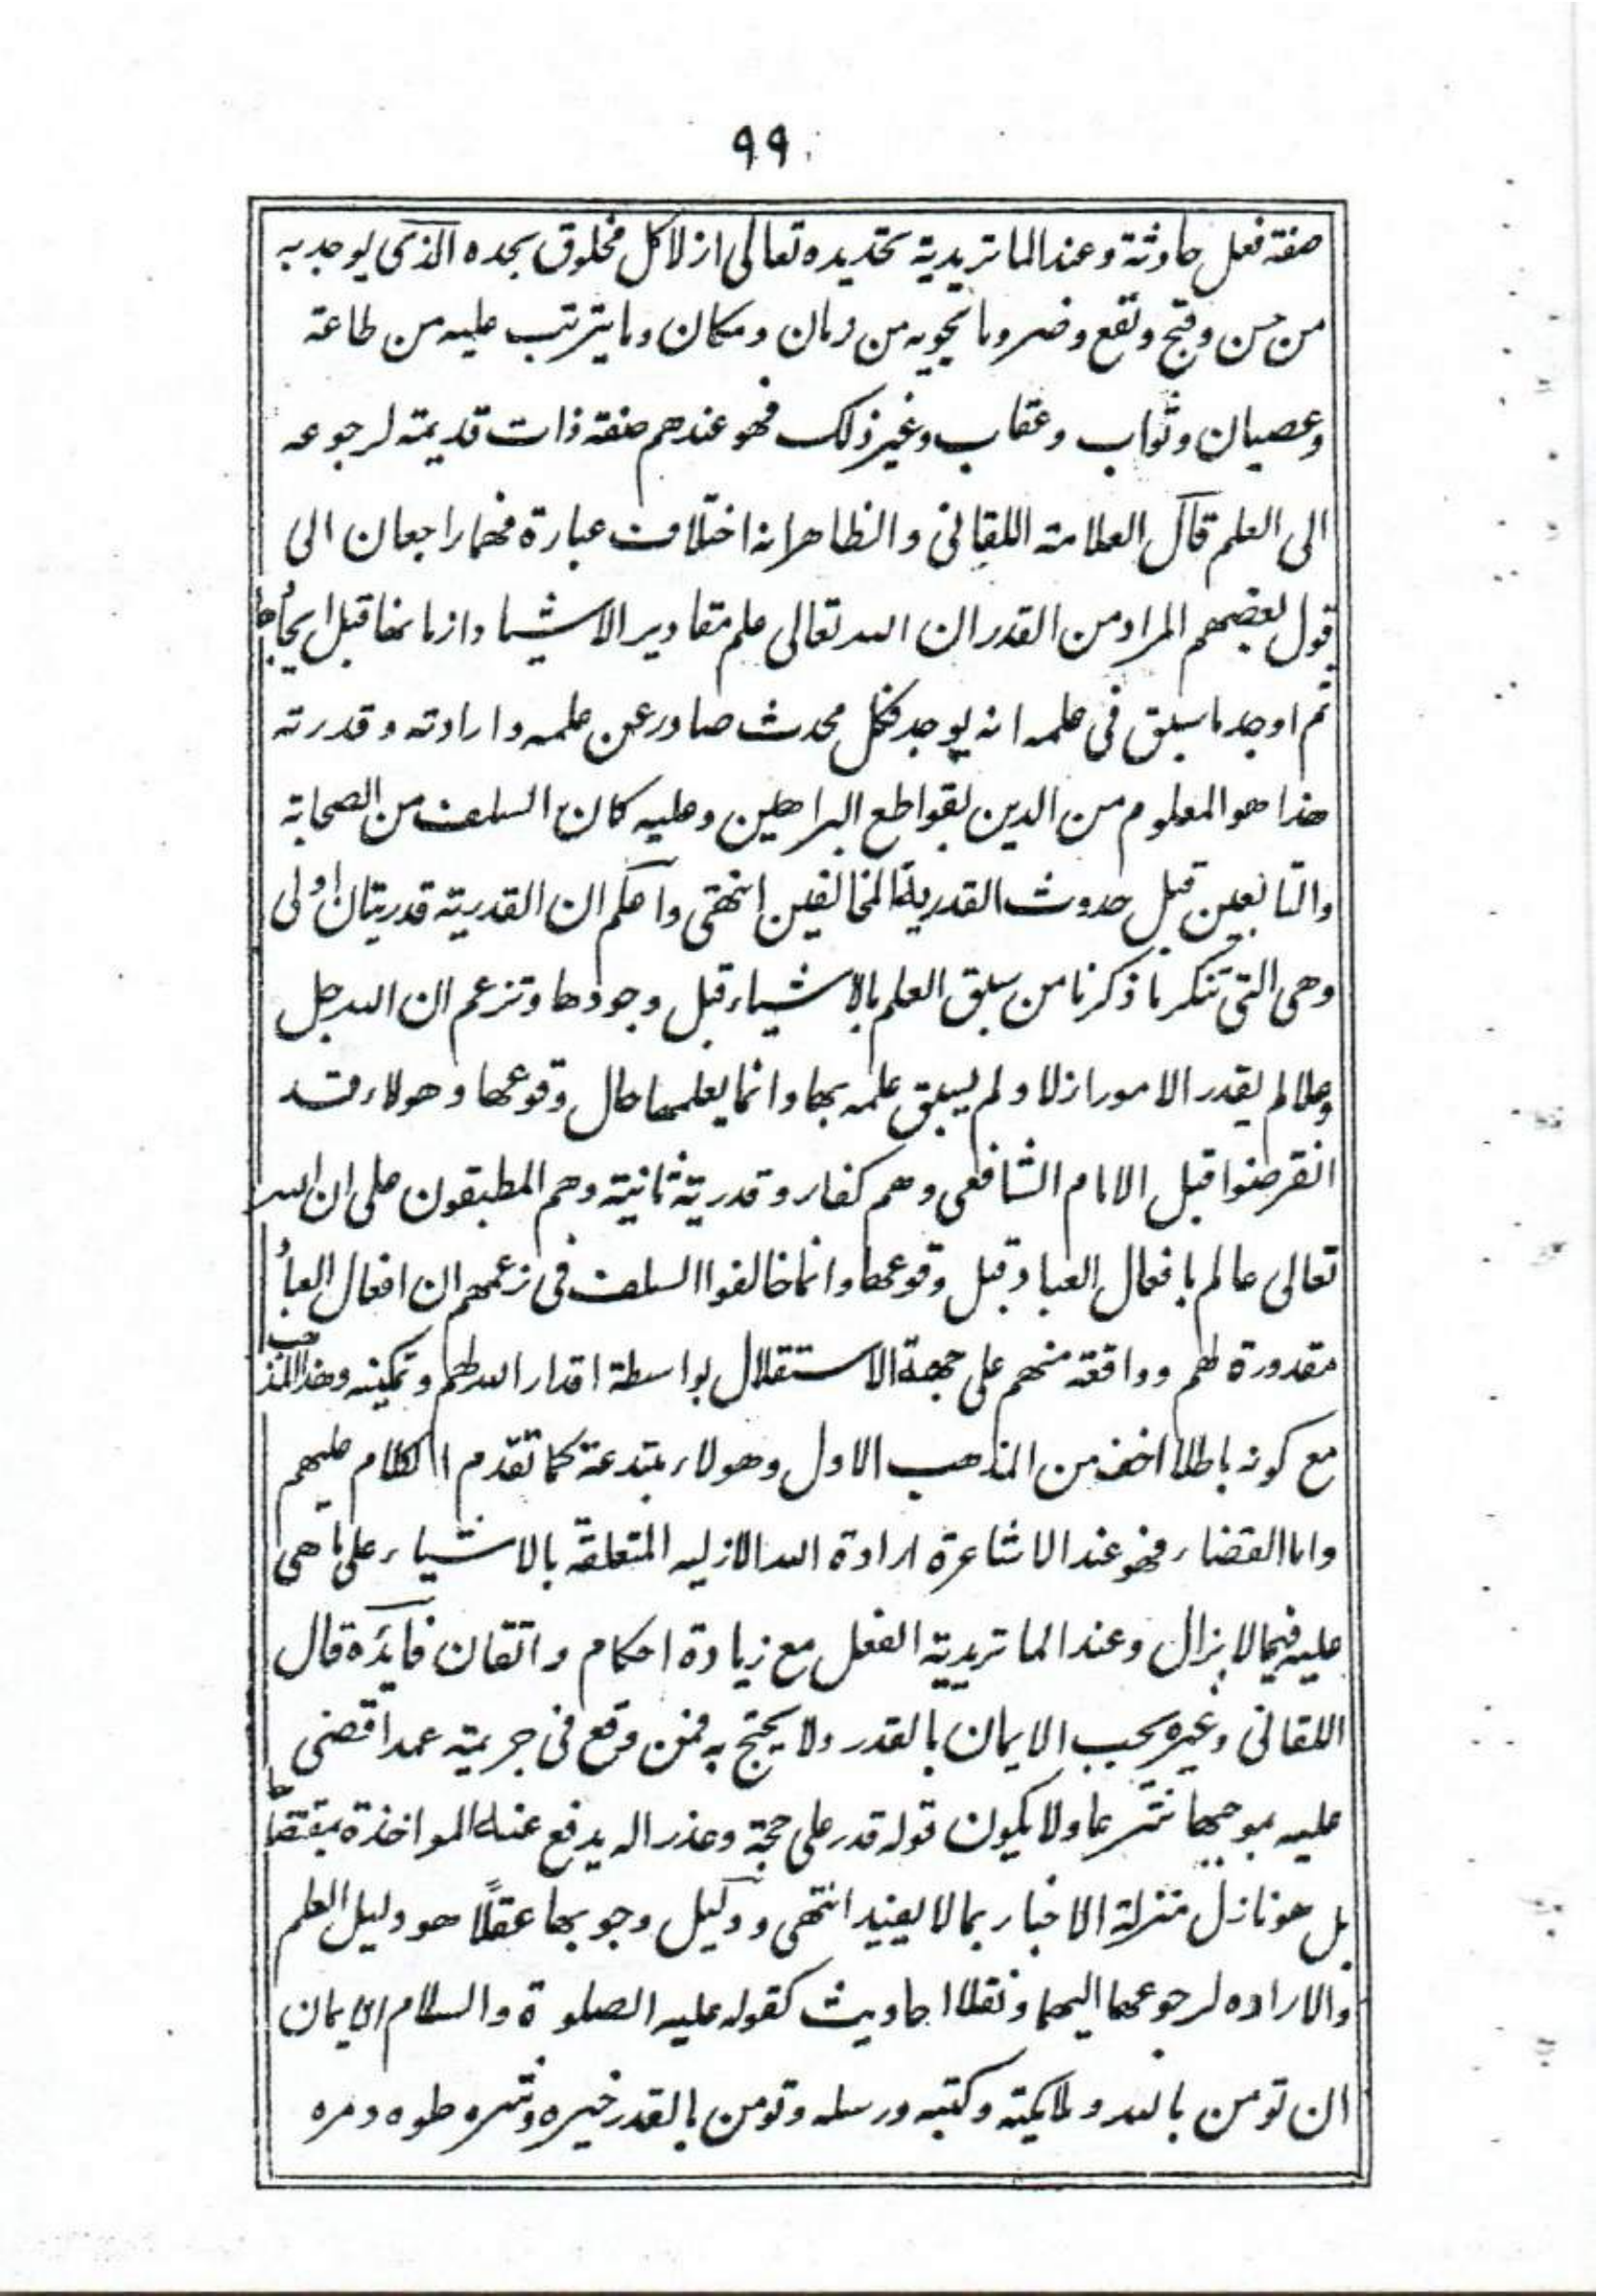 ٩٩
صفة فعل حادثة وعند الماتريدية تحديده تعالى ازلا كل مخلوق بحده الذى يوجد به
من حسن وقبح ونفع وضر وما يحويه من زمان ومكان وما يترتب عليه من طاعة
وعصيان وثواب وعقاب وغير ذلك فهو عندهم صفة ذات قديمة لرجوعه
الى العلم قال العلامة اللقانى والظاهر انه اختلاف عبارة فهما راجعان الى
قول بعضهم المراد من القدر ان الله تعالى علم مقادير الاشياء وازمانها قبل ايجادها
ثم اوجد ما سبق فى علمه انه يوجد فكل محدث صادر عن علمه وارادته وقدرته
هذا هو المعلوم من الدين بقواطع البراهين وعليه كان السلف من الصحابة
والتابعين قبل حدوث القدرية المخالفين انتهى واعلم ان القدرية قدريتان اولى
وهى التى تنكر ما ذكرنا من سبق العلم بالاشياء قبل وجودها وتزعم ان الله جل
وعلا لم يقدر الامور ازلا ولم يسبق علمه بها وانما يعلمها حال وقوعها وهولاء قد
انقرضوا قبل الامام الشافعى وهم كفار وقدرية ثانية وهم المطبقون على ان الله
تعالى عالم بافعال العباد قبل وقوعها وانما خالفوا السلف فى زعمهم ان افعال العباد
مقدورة لهم وواقعة منهم على جهة الاستقلال بواسطة اقدار الله لهم وتمكينه وهذا المذهب
مع كونه باطلا اخف من المذهب الاول وهولاء مبتدعة كما تقدم الكلام عليهم
واما القضاء فهو عند الاشاعرة ارادة الله الازليه المتعلقة بالاشياء على ما هى
عليه فيما لا يزال وعند الماتريدية الفعل مع زيادة احكام واتقان فايدة قال
اللقانى وغيره يجب الايمان بالقدر ولا يحتج به فمن وقع فى جريمة عمدا قضى
عليه بموجبها شرعا ولا يكون قوله قدر على حجة وعذر اله يدفع عنه المواخذة بمقتضاها
بل هو نازل منزلة الاخبار بما لا يفيد انتهى ودليل وجوبها عقلًا هو دليل العلم
والاراده لرجوعهما اليهما ونقلا احاديث كقوله عليه الصلوة والسلام الايمان
ان تومن بالله وملايكته وكتبه ورسله وتومن بالقدر خيره وشره حلوه ومره